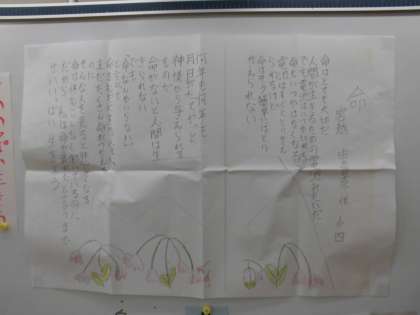 命
宮越由貴奈 小四
命はとても大切だ
人間が生きるための電池みたいだ
でも電池はいつか切れる
命もいつかはなくなる
電池はすぐにとりかえ
られるけど
命はそう簡単にはとり
かえられない
何年も何年も
月日がたってやっと
神様から与えられる
ものだ
命がないと人間は生
きられない
でも
「命なんかいらない」
と言って
命をむだにする人もいる
まだたくさん命がつかえる
のに
そんな人を見ると悲しくなる
命は休むことなく働いているのに
だから 私は命が疲れたと言うまで
せいいっぱい生きよう